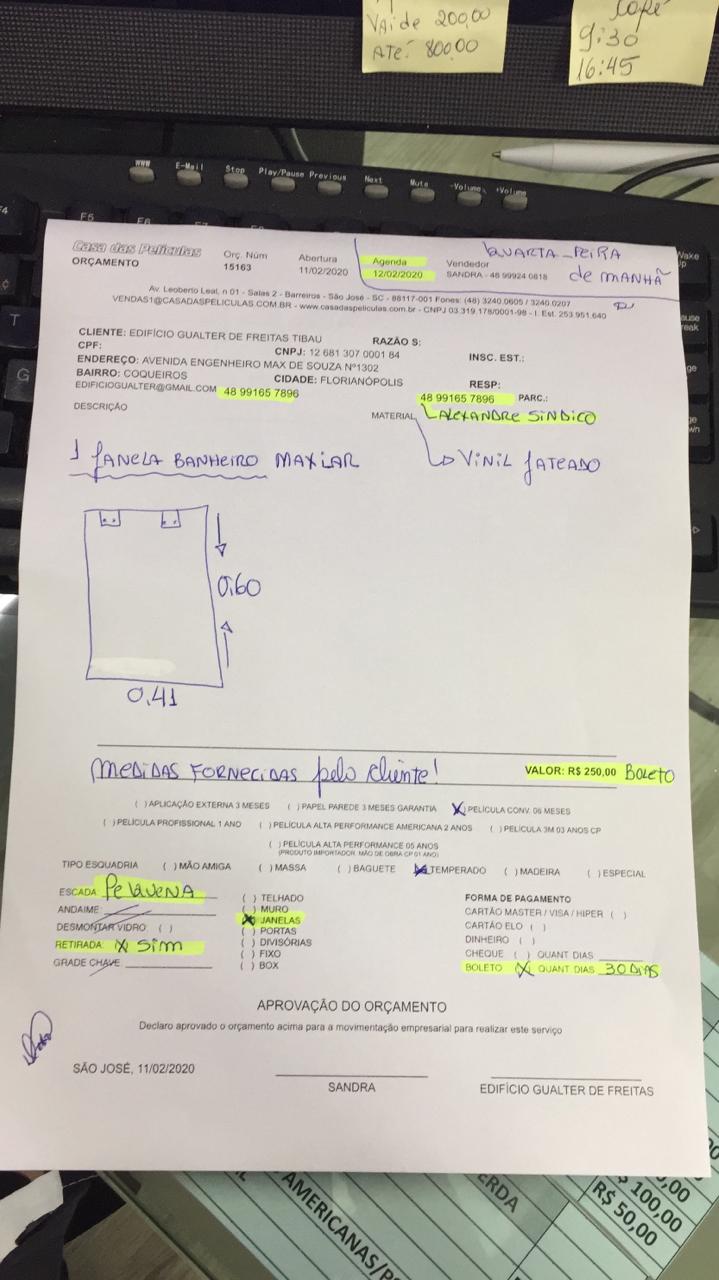 VAi de 200,00
ATÉ: 800,00
9:30
16:45
WWW E-Mail Stop Play/Pause Previous Next Mute -Volume +Volume
F4 F5 F6
Wake Up
T
G
Casa das Películas
ORÇAMENTO
Orç. Núm
15163
Abertura
11/02/2020
Agenda
12/02/2020
Vendedor
SANDRA - 48 99924 0818
QUARTA-FEIRA
de MANHÃ
Av. Leoberto Leal, n 01 - Salas 2 - Barreiros - São José - SC - 88117-001 Fones: (48) 3240.0605 / 3240.0207
VENDAS1@CASADASPELICULAS.COM.BR - www.casadaspeliculas.com.br - CNPJ 03.319.178/0001-98 - I. Est. 253.951.640
CLIENTE: EDIFÍCIO GUALTER DE FREITAS TIBAU RAZÃO S:
CPF: CNPJ: 12 681 307 0001 84 INSC. EST.:
ENDEREÇO: AVENIDA ENGENHEIRO MAX DE SOUZA Nº1302
BAIRRO: COQUEIROS CIDADE: FLORIANÓPOLIS RESP:
EDIFICIOGUALTER@GMAIL.COM 48 99165 7896 48 99165 7896 PARC.:
DESCRIÇÃO MATERIAL ALEXANDRE SINDICO
1 JANELA BANHEIRO MAXIAR VINIL JATEADO
0,60
0,41
MEDIDAS FORNECIDAS pelo cliente! VALOR: R$ 250,00 BOLETO
( ) APLICAÇÃO EXTERNA 3 MESES ( ) PAPEL PAREDE 3 MESES GARANTIA (X) PELÍCULA CONV. 06 MESES
( ) PELÍCULA PROFISSIONAL 1 ANO ( ) PELÍCULA ALTA PERFORMANCE AMERICANA 2 ANOS ( ) PELÍCULA 3M 03 ANOS CP
( ) PELÍCULA ALTA PERFORMANCE 05 ANOS
(PRODUTO IMPORTADOR. MÃO DE OBRA CP 01 ANO)
TIPO ESQUADRIA ( ) MÃO AMIGA ( ) MASSA ( ) BAGUETE (X) TEMPERADO ( ) MADEIRA ( ) ESPECIAL
ESCADA: PeQUENA
ANDAIME:
DESMONTAR VIDRO: ( )
RETIRADA: (X) Sim
GRADE CHAVE:
( ) TELHADO
( ) MURO
(X) JANELAS
( ) PORTAS
( ) DIVISÓRIAS
( ) FIXO
( ) BOX
FORMA DE PAGAMENTO
CARTÃO MASTER / VISA / HIPER ( )
CARTÃO ELO ( )
DINHEIRO ( )
CHEQUE ( ) QUANT DIAS
BOLETO (X) QUANT DIAS 30 DIAS
APROVAÇÃO DO ORÇAMENTO
Declaro aprovado o orçamento acima para a movimentação empresarial para realizar este serviço
SÃO JOSÉ, 11/02/2020
SANDRA
EDIFÍCIO GUALTER DE FREITAS
R$ 100,00
R$ 50,00
AMERICANAS